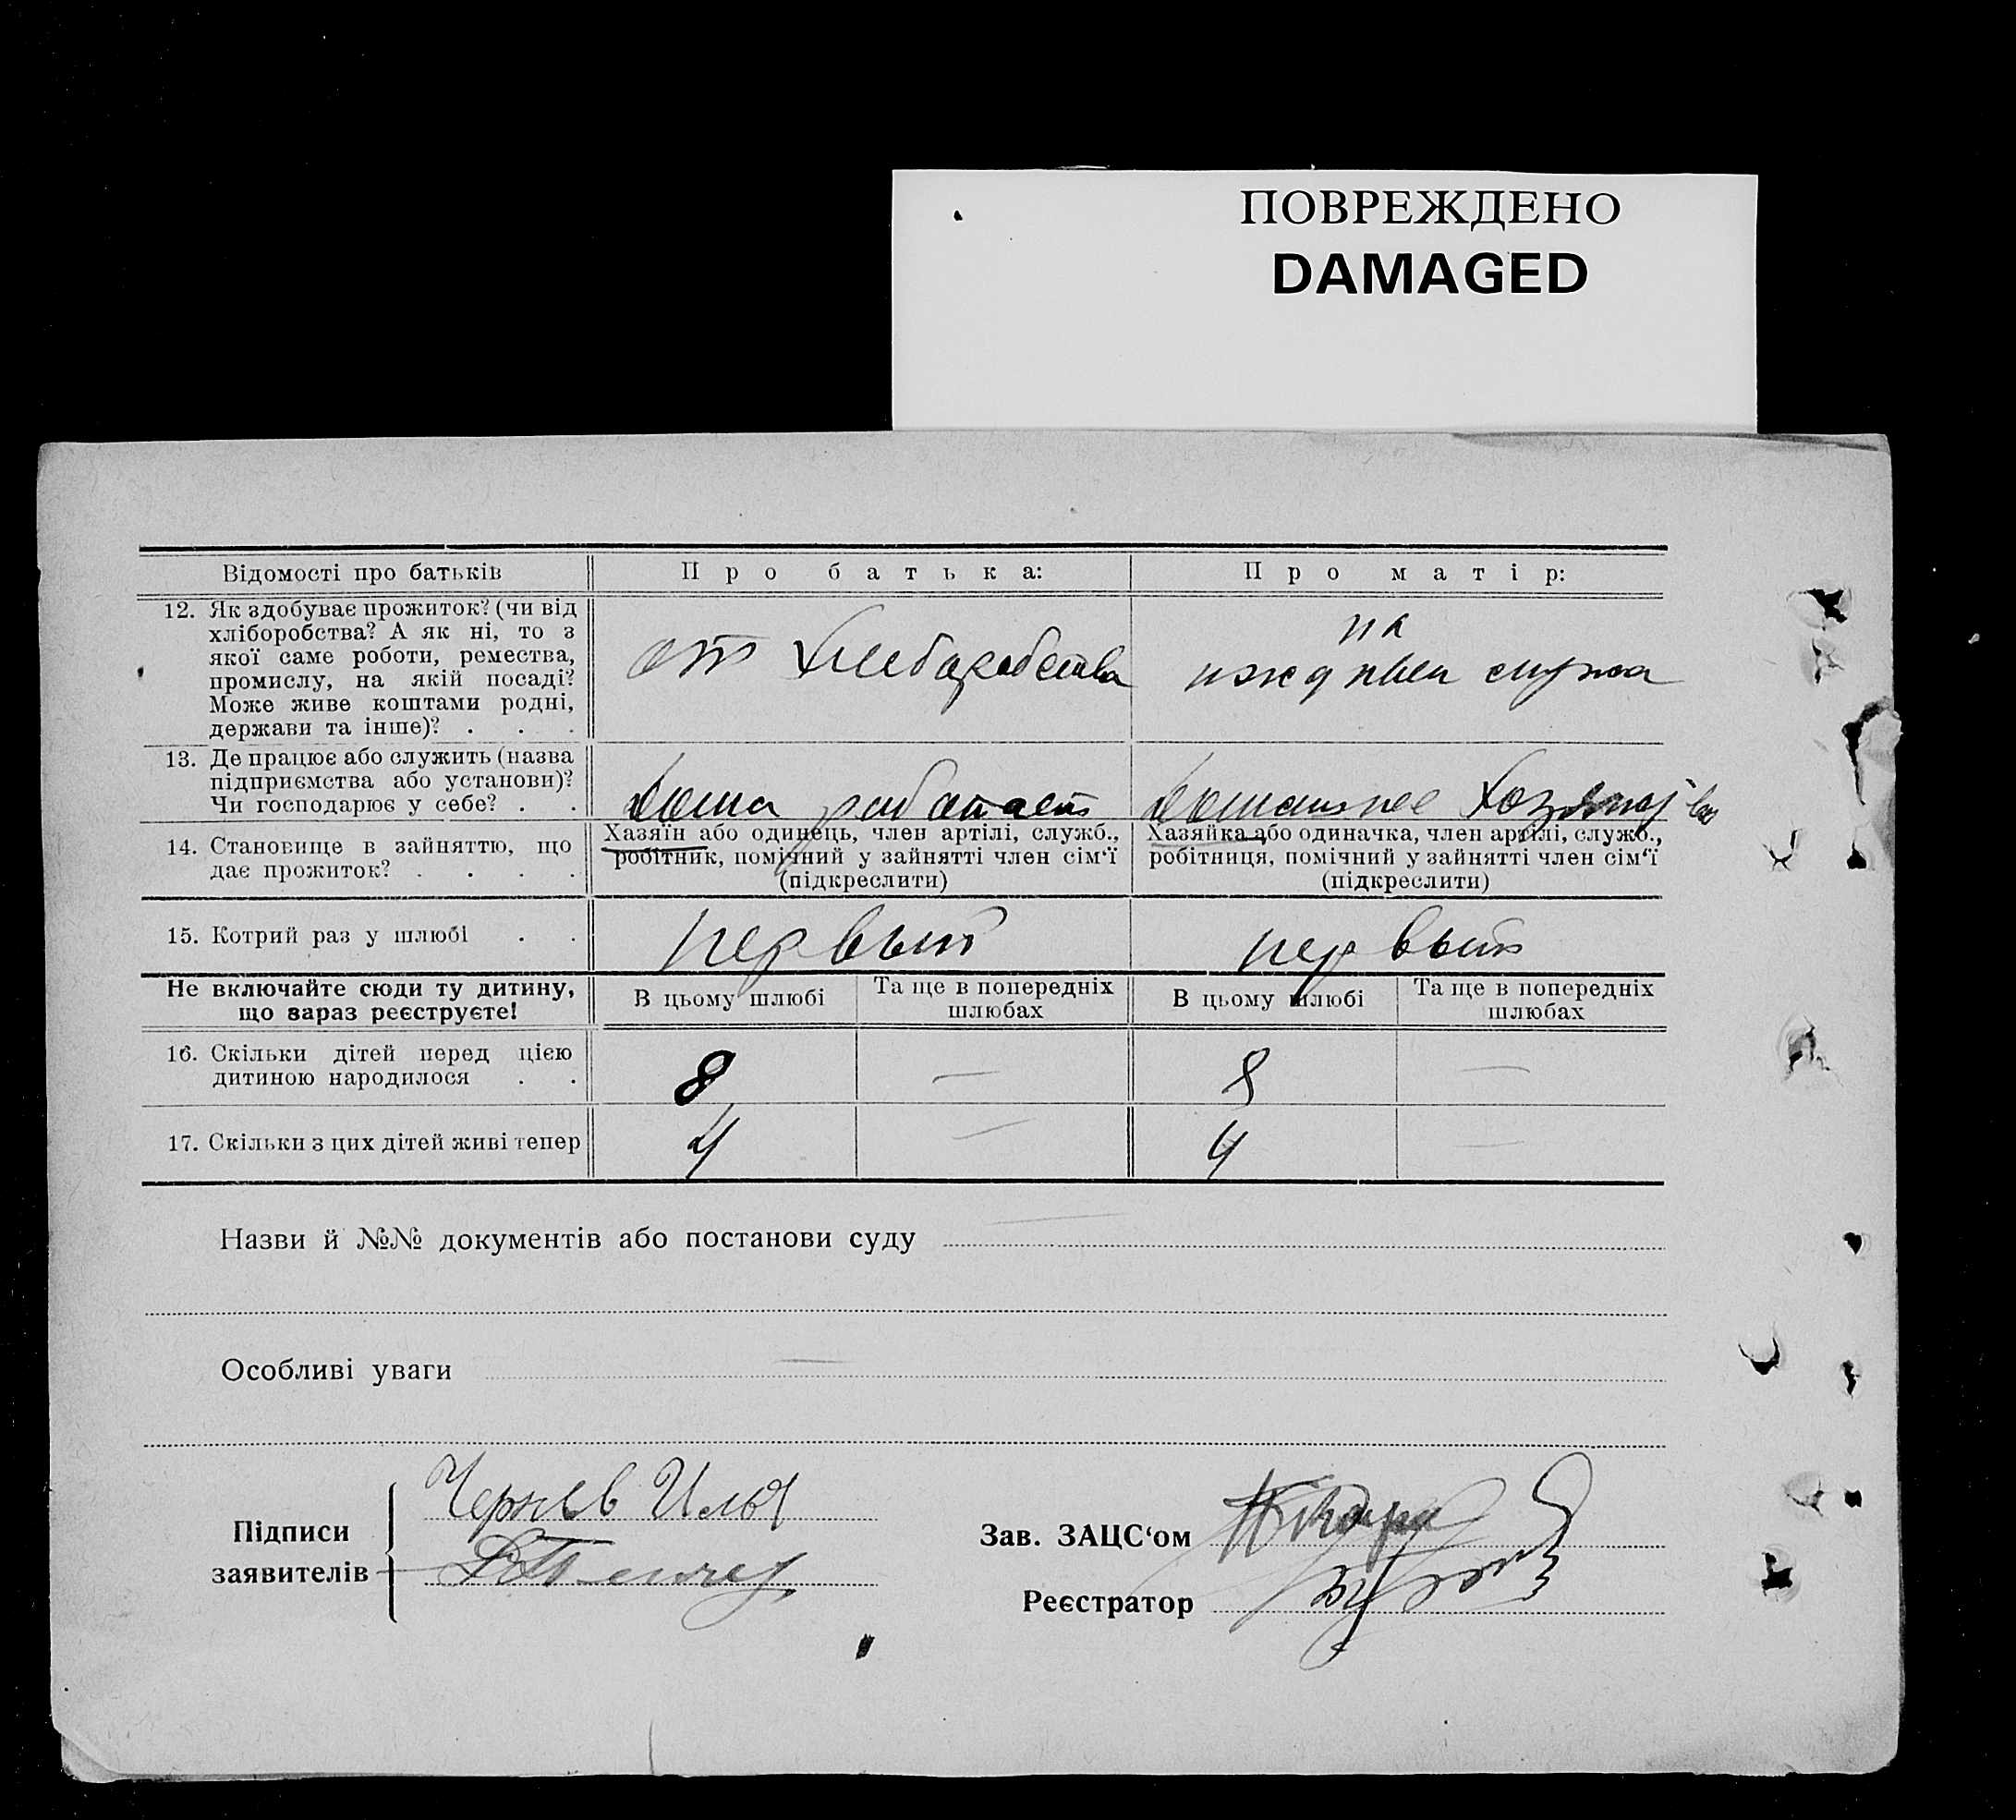 ПОВРЕЖДЕНО
DAMAGED
Відомості про батьків
Про батька:
Про матір:
12. Як здобуває прожиток? (чи від
хліборобства? А як ні, то з
якої саме роботи, ремества,
промислу, на якій посаді?
Може живе коштами родні,
держави та інше)? . . .
от Хлебаробства
на
иждивен мужа
13. Де працює або служить (назва
підприємства або установи)?
Чи господарює у себе? . .
Дома работает
Домашнее Хозяйство
14. Становище в зайняттю, що
дає прожиток? . . . .
Хазяїн або одинець, член артілі, служб.,
робітник, помічний у зайнятті член сім‘ї
(підкреслити)
Хазяйка або одиначка, член артілі, служб.,
робітниця, помічний у зайнятті член сім‘ї
(підкреслити)
15. Котрий раз у шлюбі . .
первый
первый
Не включайте сюди ту дитину,
що зараз реєструєте!
В цьому шлюбі
Та ще в попередніх
шлюбах
В цьому шлюбі
Та ще в попередніх
шлюбах
16. Скільки дітей перед цією
дитиною народилося . .
8
—
8
—
17. Скільки з цих дітей живі тепер
4
—
4
—
Назви й №№ документів або постанови суду —
Особливі уваги —
Підписи
заявителів
Чернев Илья
Зав. ЗАЦС‘ом
Реєстратор